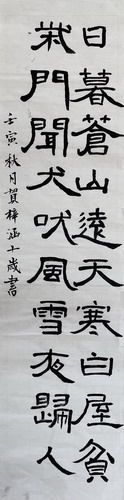 日暮蒼山遠天寒白屋貧
柴門聞犬吠風雪夜歸人
壬寅秋月賀梓涵十歲書